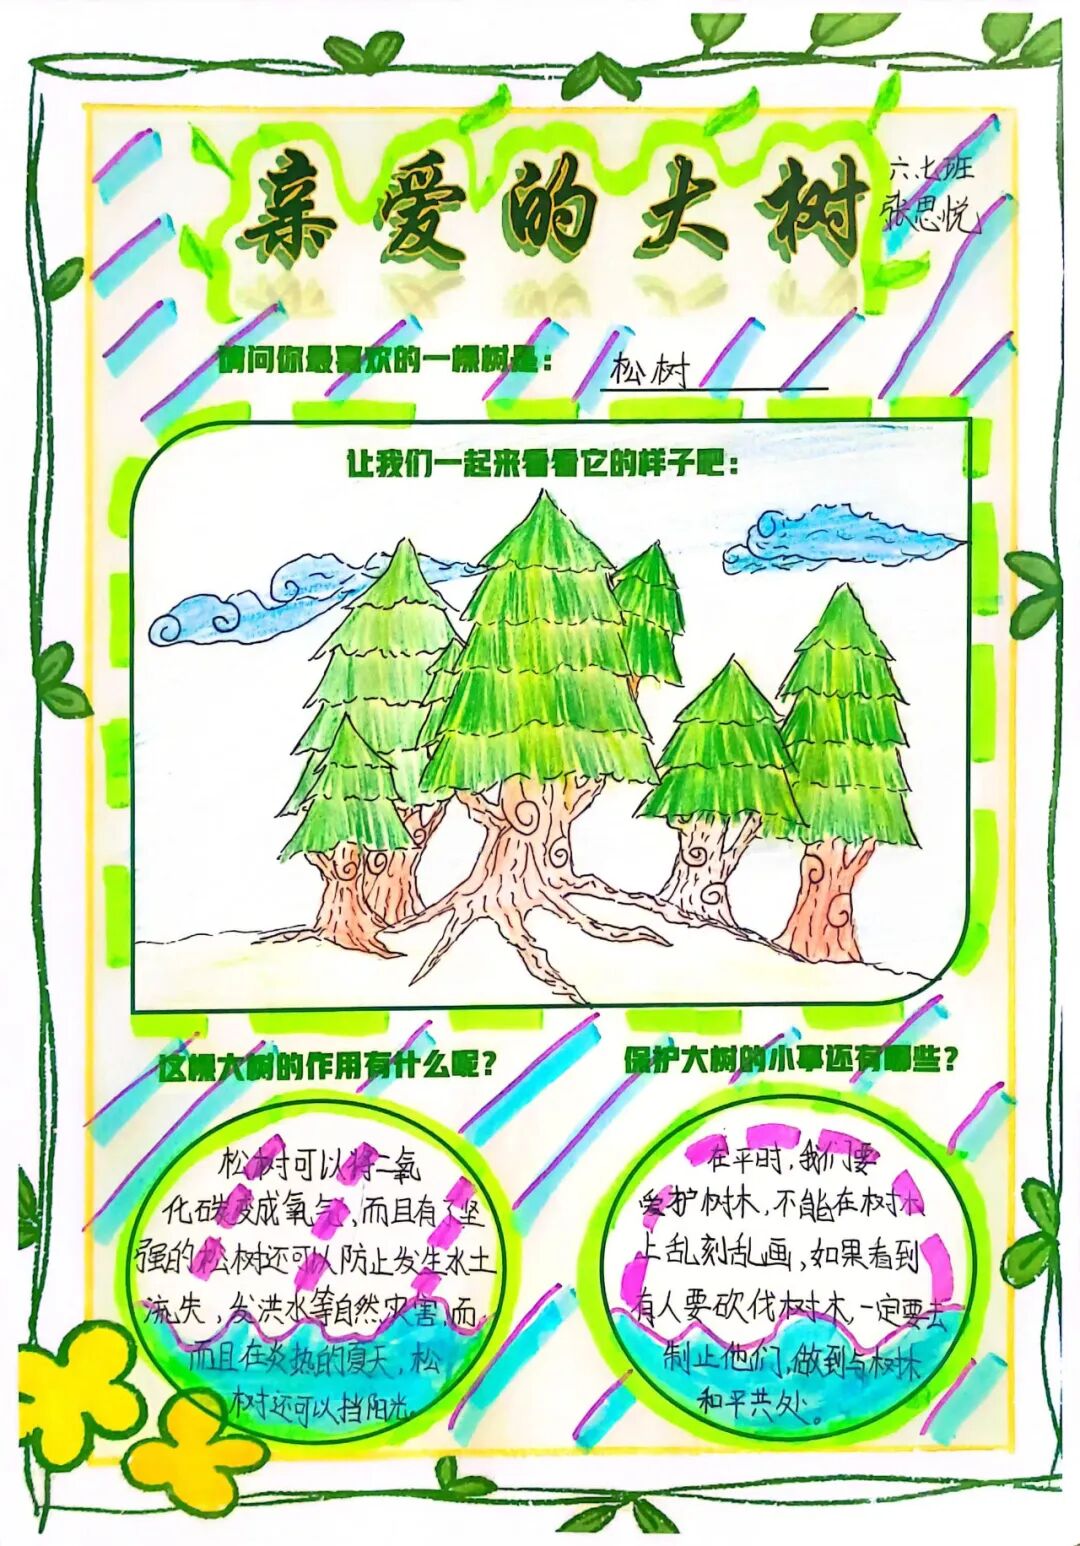 亲爱的大树
六七班
张思悦
请问你最喜欢的一棵树是： 松树
让我们一起来看看它的样子吧：
这棵大树的作用有什么呢？
松树可以将二氧
化碳变成氧气，而且有了坚
强的松树还可以防止发生水土
流失，发洪水等自然灾害，而
而且在炎热的夏天，松
树还可以挡阳光。
保护大树的小事还有哪些？
在平时，我们要
爱护树木，不能在树木
上乱刻乱画，如果看到
有人要砍伐树木，一定要去
制止他们，做到与树林
和平共处。